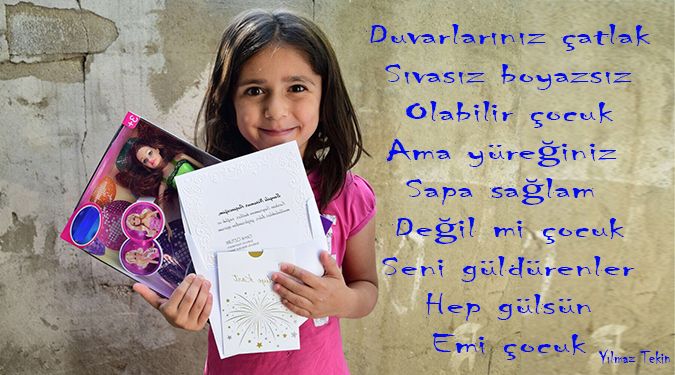 Duvarlarınız çatlak
Sıvasız boyazsız
Olabilir çocuk
Ama yüreğiniz
Sapa sağlam
Değil mi çocuk
Seni güldürenler
Hep gülsün
Emi çocuk
Yılmaz Tekin
3+
Kart